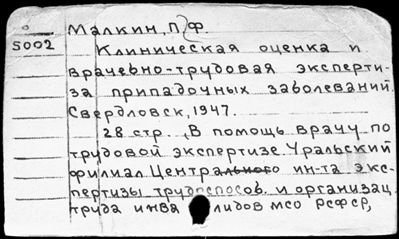 Малкин, П. Ф.
5002
Клиническая оценка и
врачебно-трудовая эксперти-
за припадочных заболеваний.
Свердловск, 1947.
28 стр. „В помощь врачу по
трудовой экспертизе. Уральский
филиал Центрального ин-та экс-
пертизы трудоспособ. и организац.
труда инва лидов МСО РСФСР,